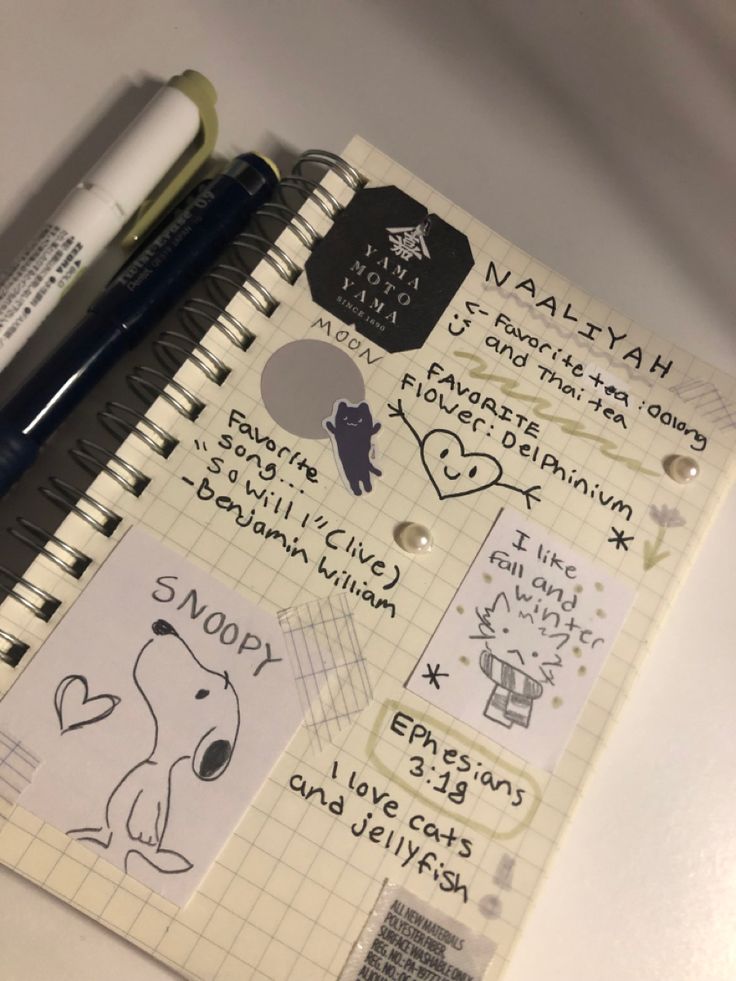 嘉
YAMA
MOTO
YAMA
SINCE 1690
NAALIYAH
<- Favorite tea : Oolong
and Thai tea
MOON
FAVORITE
Flower: Delphinium
Favorite
song...
"So Will I" (live)
-Benjamin William
I like
fall and
winter
SNOOPY
Ephesians
3:18
I love cats
and jellyfish
ALL NEW MATERIALS
POLYESTER FIBER
SURFACE WASHABLE ONLY
REG. NO.: PA-1977
ZEBRA
Pentel
JAPAN